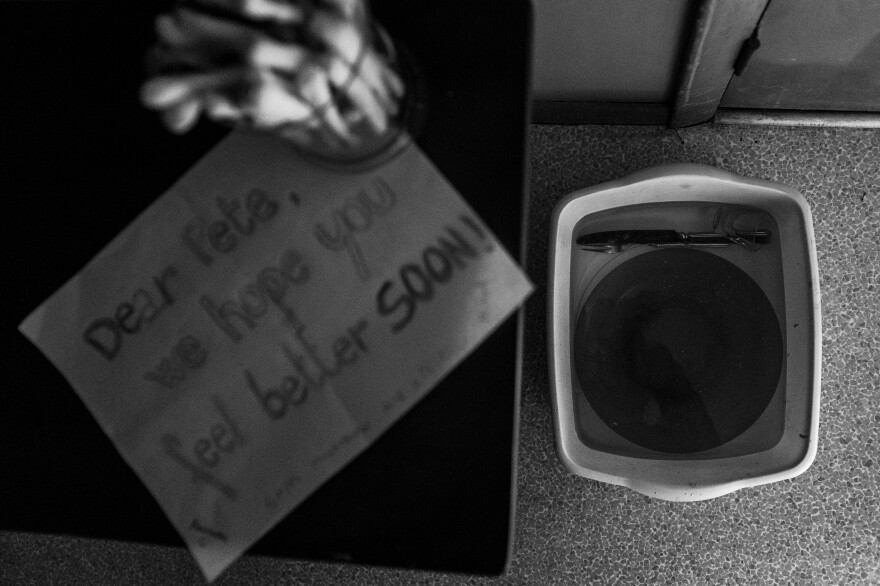 Dear Pete,
we hope you
feel better SOON!